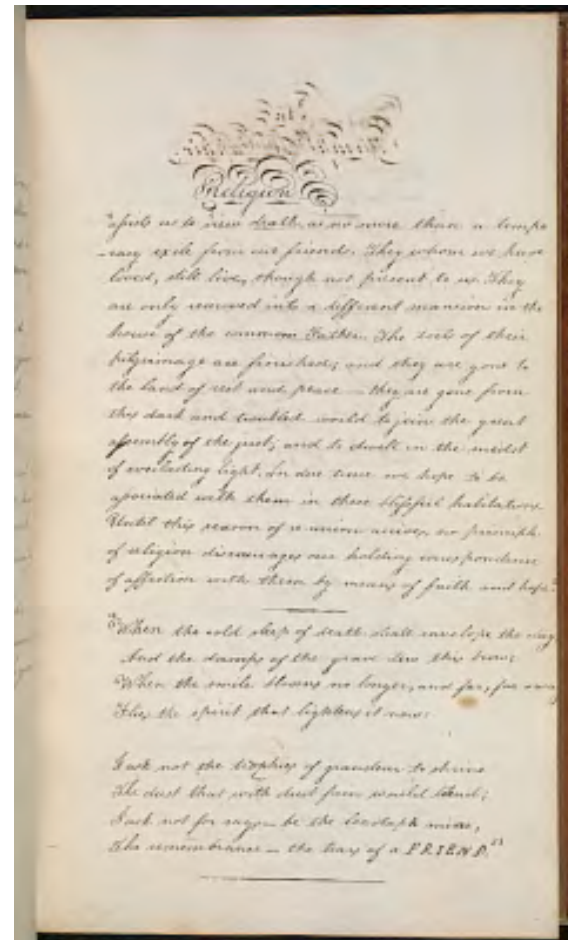 Religion
"assists us to view death, as no more than a tempo
-rary exile from our friends. They whom we have
loved, still live, though not present to us. They
are only removed into a different mansion in the
house of the common Father. The toils of their
pilgrimage are finished; and they are gone to
the land of rest and peace — they are gone from
this dark and troubled world to join the great
assembly of the just; and to dwell in the midst
of everlasting light. In due time we hope to be
associated with them in these blissful habitations
Until this season of re-union arrives, no principle
of religion discourages our holding correspondence
of affection with them by means of faith and hope."
"When the cold sleep of death shall envelope the
And the damps of the grave dew this brow;
When the smile no longer, and far, far away
Flies the spirit that lightens it now:
I ask not the trophies of grandeur to shrine
The dust that with dust from would blend;
I ask not for — be the mine,
The remembrance — the tears of a FRIEND."